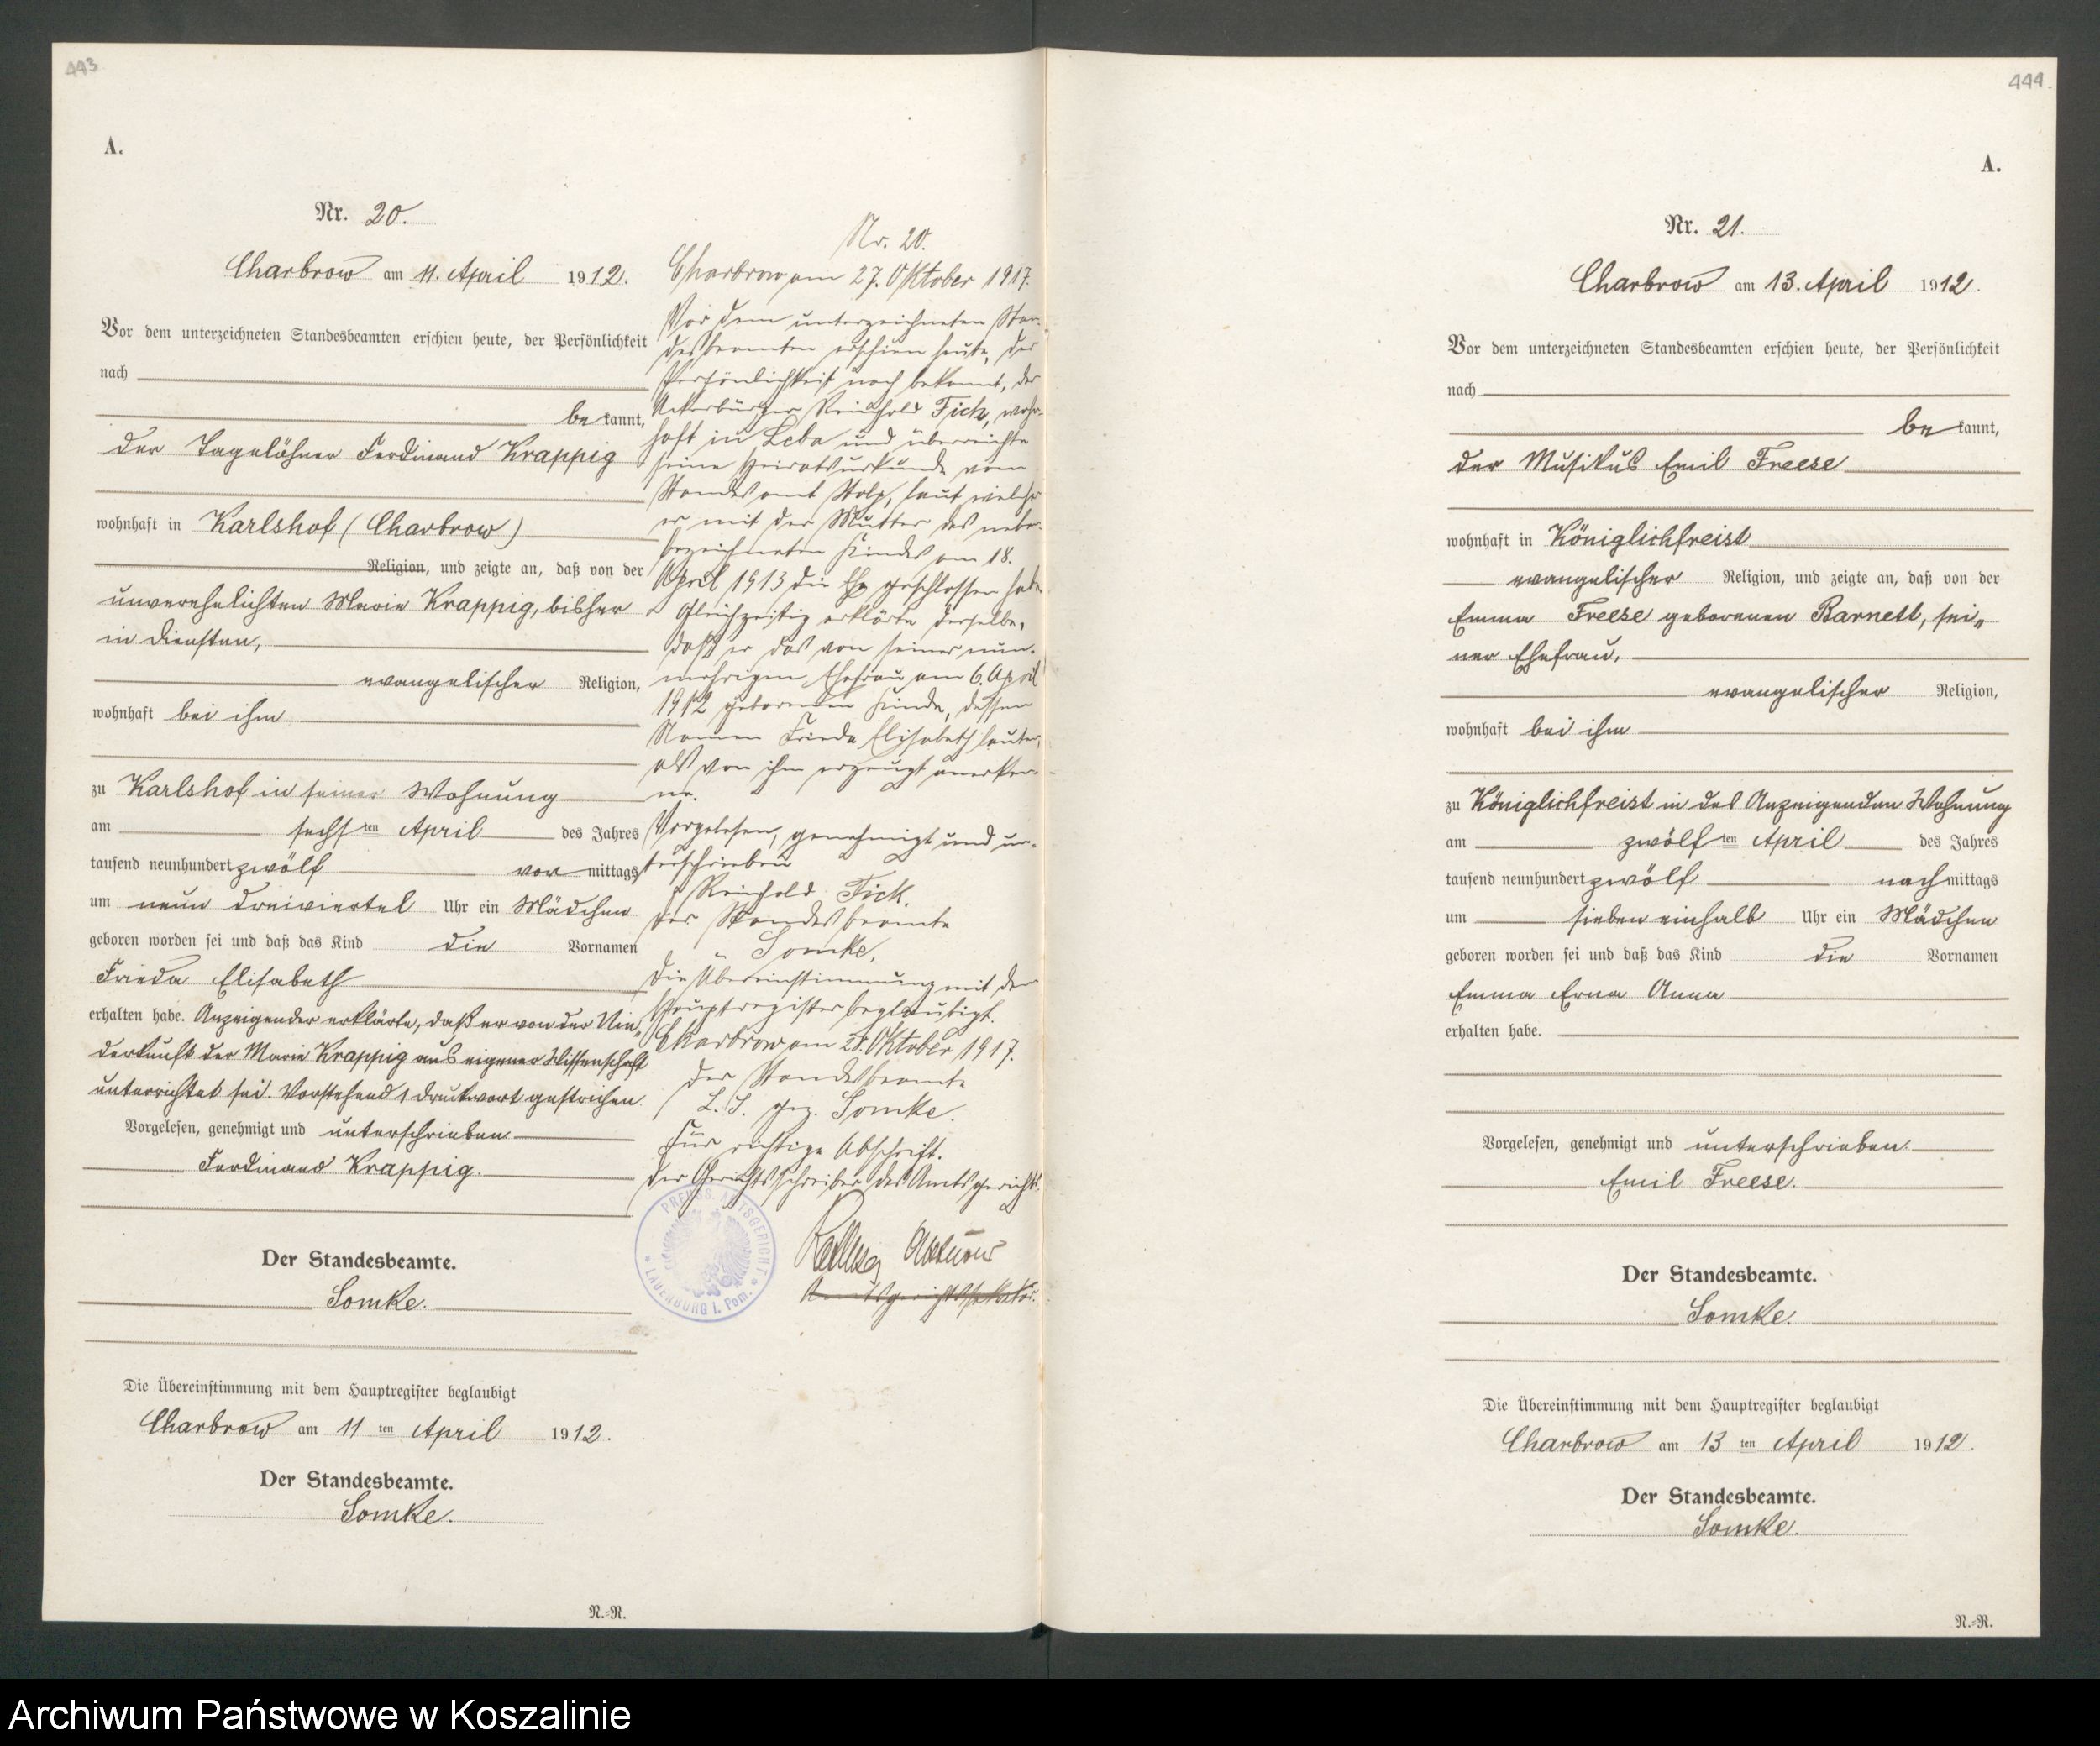 443
A.
Nr. 20.
Charbrow am 11. April 1912.
Vor dem unterzeichneten Standesbeamten erschien heute, der Persönlichkeit
nach
bekannt,
der Tagelöhner Ferdinand Krappig
wohnhaft in Karlshof (Charbrow)
Religion, und zeigte an, daß von der
unverehelichten Marie Krappig, bisher
in Diensten,
evangelischer Religion,
wohnhaft bei ihm
zu Karlshof in seiner Wohnung
am sechsten April des Jahres
tausend neunhundert zwölf vormittags
um neun dreiviertel Uhr ein Mädchen
geboren worden sei und daß das Kind die Vornamen
Frieda Elisabeth
erhalten habe. Anzeigender erklärte, daß er von der Nie„
derkunft der Marie Krappig aus eigener Wissenschaft
unterrichtet sei. Vorstehend 1 Druckwort gestrichen.
Vorgelesen, genehmigt und unterschrieben
Ferdinand Krappig.
Der Standesbeamte.
Somke.
Die Übereinstimmung mit dem Hauptregister beglaubigt
Charbrow am 11ten April 1912.
Der Standesbeamte.
Somke.
N.=R.
Nr. 20.
Charbrow am 27. Oktober 1917.
Vor dem unterzeichneten Stan-
desbeamten erschien heute, der
Persönlichkeit nach bekannt, der
Ackerbürger Reinhold Fick, wohn-
haft in Leba und überreichte
seine Heiratsurkunde vom
Standesamt Stolp, laut welcher
er mit der Mutter des neben-
bezeichneten Kindes am 18.
April 1913 die Ehe geschlossen habe
Gleichzeitig erklärte derselbe,
daß er das von seiner nun-
mehrigen Ehefrau am 6. April
1912 geborenen Kinde, dessen
Namen Frieda Elisabeth lauten,
als von ihm erzeugt anerken-
ne.
Vorgelesen, genehmigt und un-
terschrieben
Reinhold Fick.
Der Standesbeamte
Somke.
Die Übereinstimmung mit dem
Hauptregister beglaubigt.
Charbrow am 28. Oktober 1917.
Der Standesbeamte
L.S. gez. Somke.
Für richtige Abschrift.
Der Gerichtsschreiber des Amtsgerichts.
PREUSS. AMTSGERICHT * LAUENBURG i. Pom. *
Amtsgerichtssekretär.
444.
A.
Nr. 21.
Charbrow am 13. April 1912.
Vor dem unterzeichneten Standesbeamten erschien heute, der Persönlichkeit
nach
bekannt,
der Musikus Emil Freese
wohnhaft in Königlichfreist
evangelischer Religion, und zeigte an, daß von der
Emma Freese geborenen Barnett, sei„
ner Ehefrau,
evangelischer Religion,
wohnhaft bei ihm
zu Königlichfreist in des Anzeigenden Wohnung
am zwölften April des Jahres
tausend neunhundert zwölf nachmittags
um sieben einhalb Uhr ein Mädchen
geboren worden sei und daß das Kind die Vornamen
Emma Erna Anna
erhalten habe.
Vorgelesen, genehmigt und unterschrieben
Emil Freese.
Der Standesbeamte.
Somke.
Die Übereinstimmung mit dem Hauptregister beglaubigt
Charbrow am 13ten April 1912.
Der Standesbeamte.
Somke.
N.=R.
Archiwum Państwowe w Koszalinie